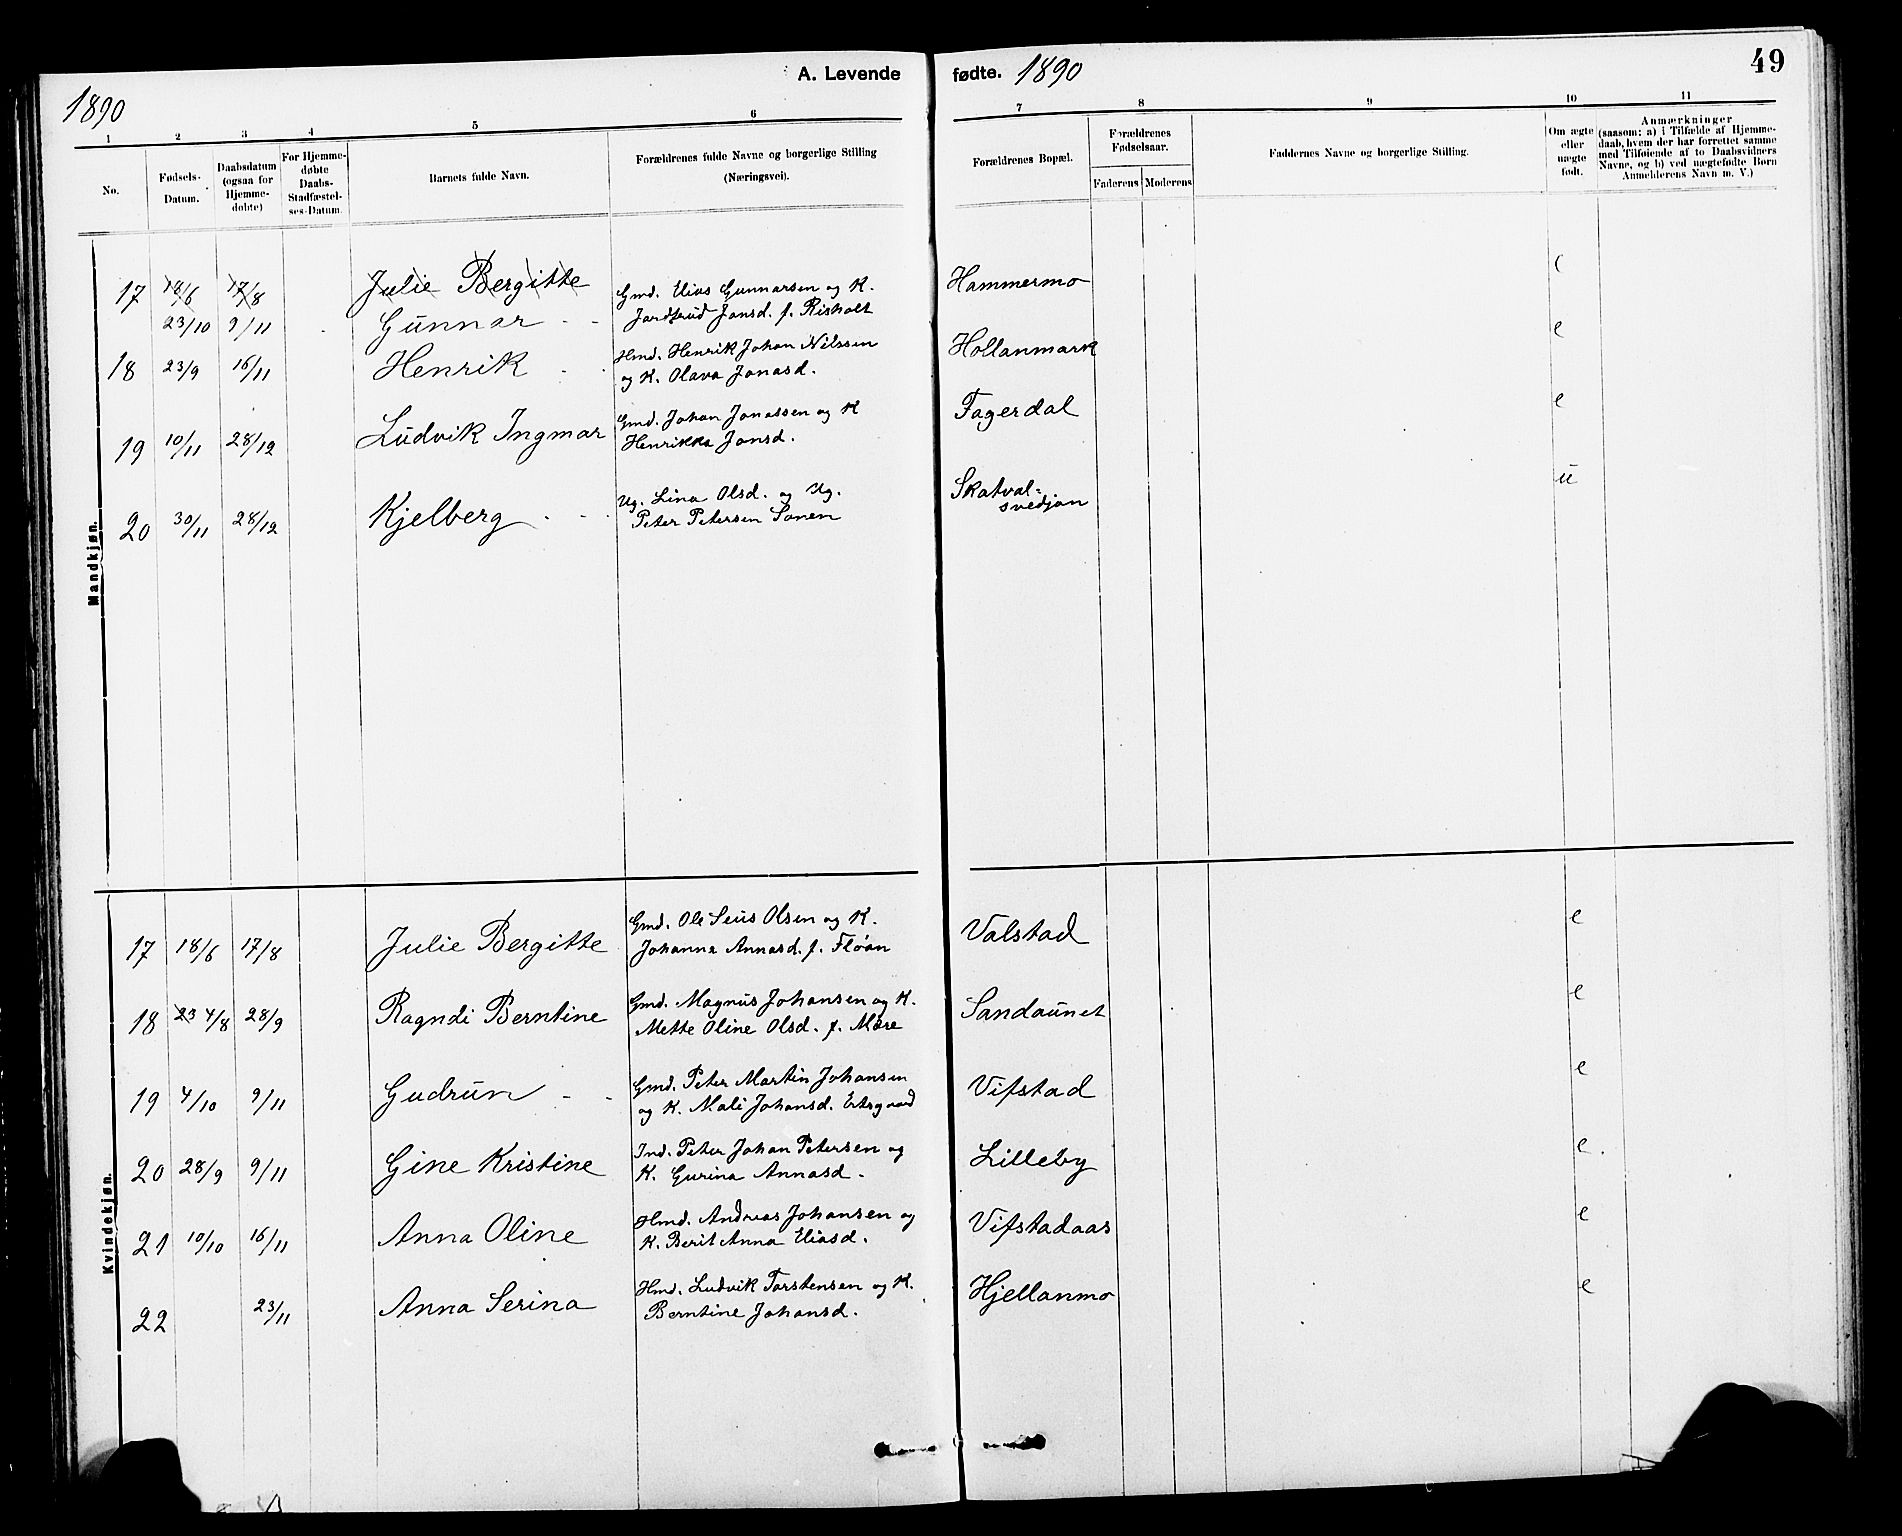 A. Levende fødte. 1890 49
1890
1 2 3 4 5 6 7 8 9 10 11
No.
Fødsels-
Datum.
Daabsdatum
(ogsaa for
Hjemme-
døbte)
For Hjemme-
døbte
Daabs-
Stadfæstel-
ses-Datum.
Barnets fulde Navn.
Forældrenes fulde Navne og borgerlige Stilling
(Næringsvei).
Forældrenes Bopæl.
Forældrenes
Fødselsaar.
Faderens Moderens
Faddernes Navne og borgerlige Stilling.
Om ægte
eller
uægte
født.
Anmærkninger
(saasom: a) i Tilfælde af Hjemme-
daab, hvem der har forrettet samme
med Tilføiende af to Daabsvidners
Navne, og b) ved uægtefødte Børn
Anmelderens Navn m. V.)
Mandkjøn.
17 18/6 17/8 Julie Bergitte Gmd. Elias Gunnarsen og K. Hammermo
23/10 9/11 Gunnar Jardtrud Jonsd. f. Risholt
18 23/9 16/11 Henrik Hmd. Henrik Johan Nilssen Hollanmark e
og K. Olava Jonasd.
19 10/11 28/12 Ludvik Ingmar Gmd. Johan Jonassen og K Fagerdal e
Henrikka Jonsd.
20 30/11 28/12 Kjelberg Ug. Lina Olsd. og Ug. Skatval- u
Peter Petersen Sonen svedjan
Kvindekjøn.
17 18/6 17/8 Julie Bergitte Gmd. Ole Seius Olsen og K. Valstad e
Johanna Annasd. f. Fløan
18 23 4/8 28/9 Ragndi Berntine Gmd. Magnus Johansen og K. Sandaunet e
Mette Oline Olsd. f. Mære
19 4/10 9/11 Gudrun Gmd. Peter Martin Johansen Vifstad e
og K. Mali Johansd. Ertsgaard
20 28/9 9/11 Gine Kristine Ind. Peter Johan Petersen og Lilleby e.
K. Gurina Annasd.
21 10/10 16/11 Anna Oline Hmd. Andreas Johansen og Vifstadaas e
K. Berit Anna Eliasd.
22 23/11 Anna Serina Hmd. Ludvik Torstensen og K. Hjellanmo e
Berntine Johansd.